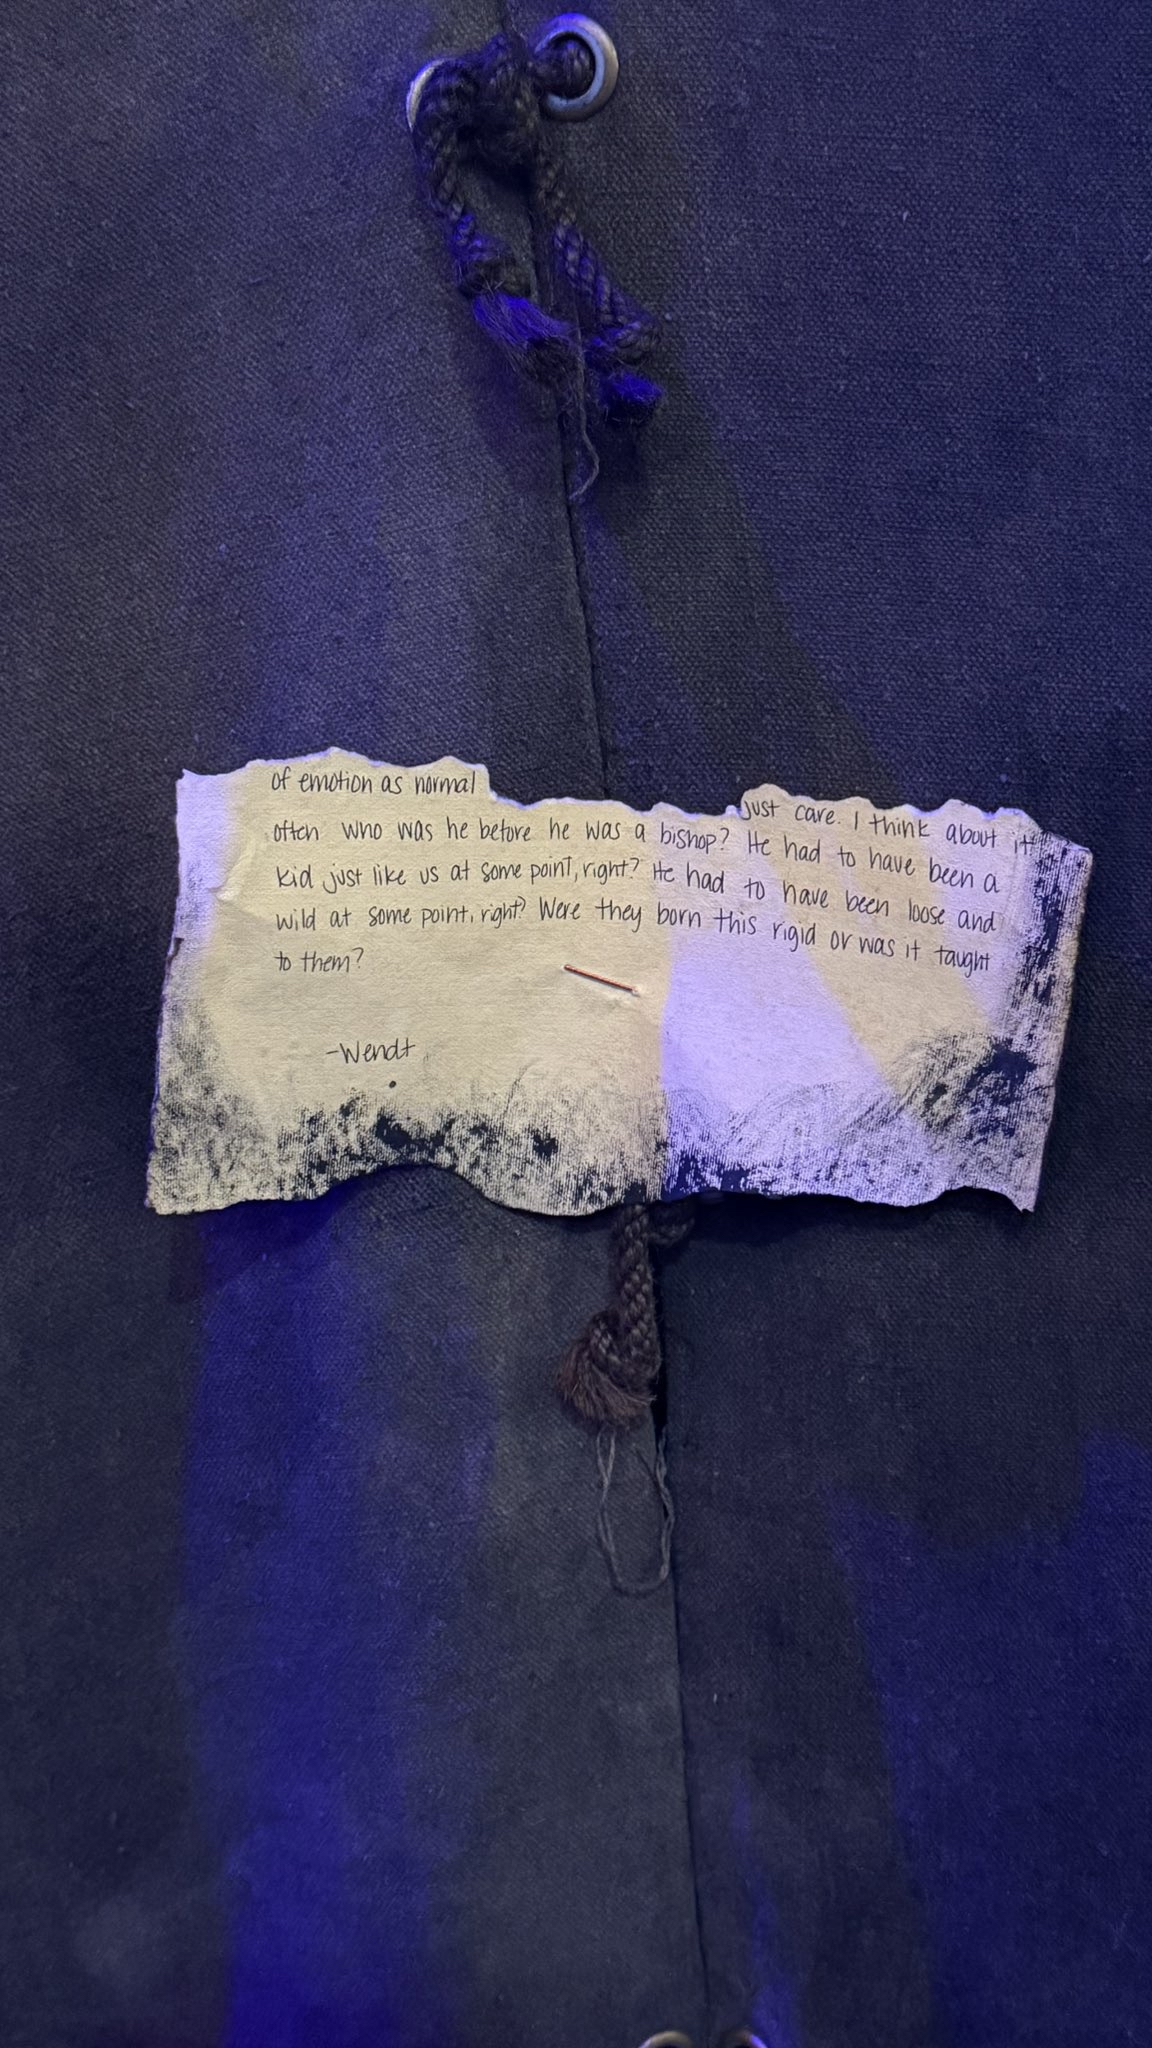 of emotion as normal just care. I think about it
often who was he before he was a bishop? He had to have been a
kid just like us at some point, right? He had to have been loose and
wild at some point, right? Were they born this rigid or was it taught
to them?
-Wendt